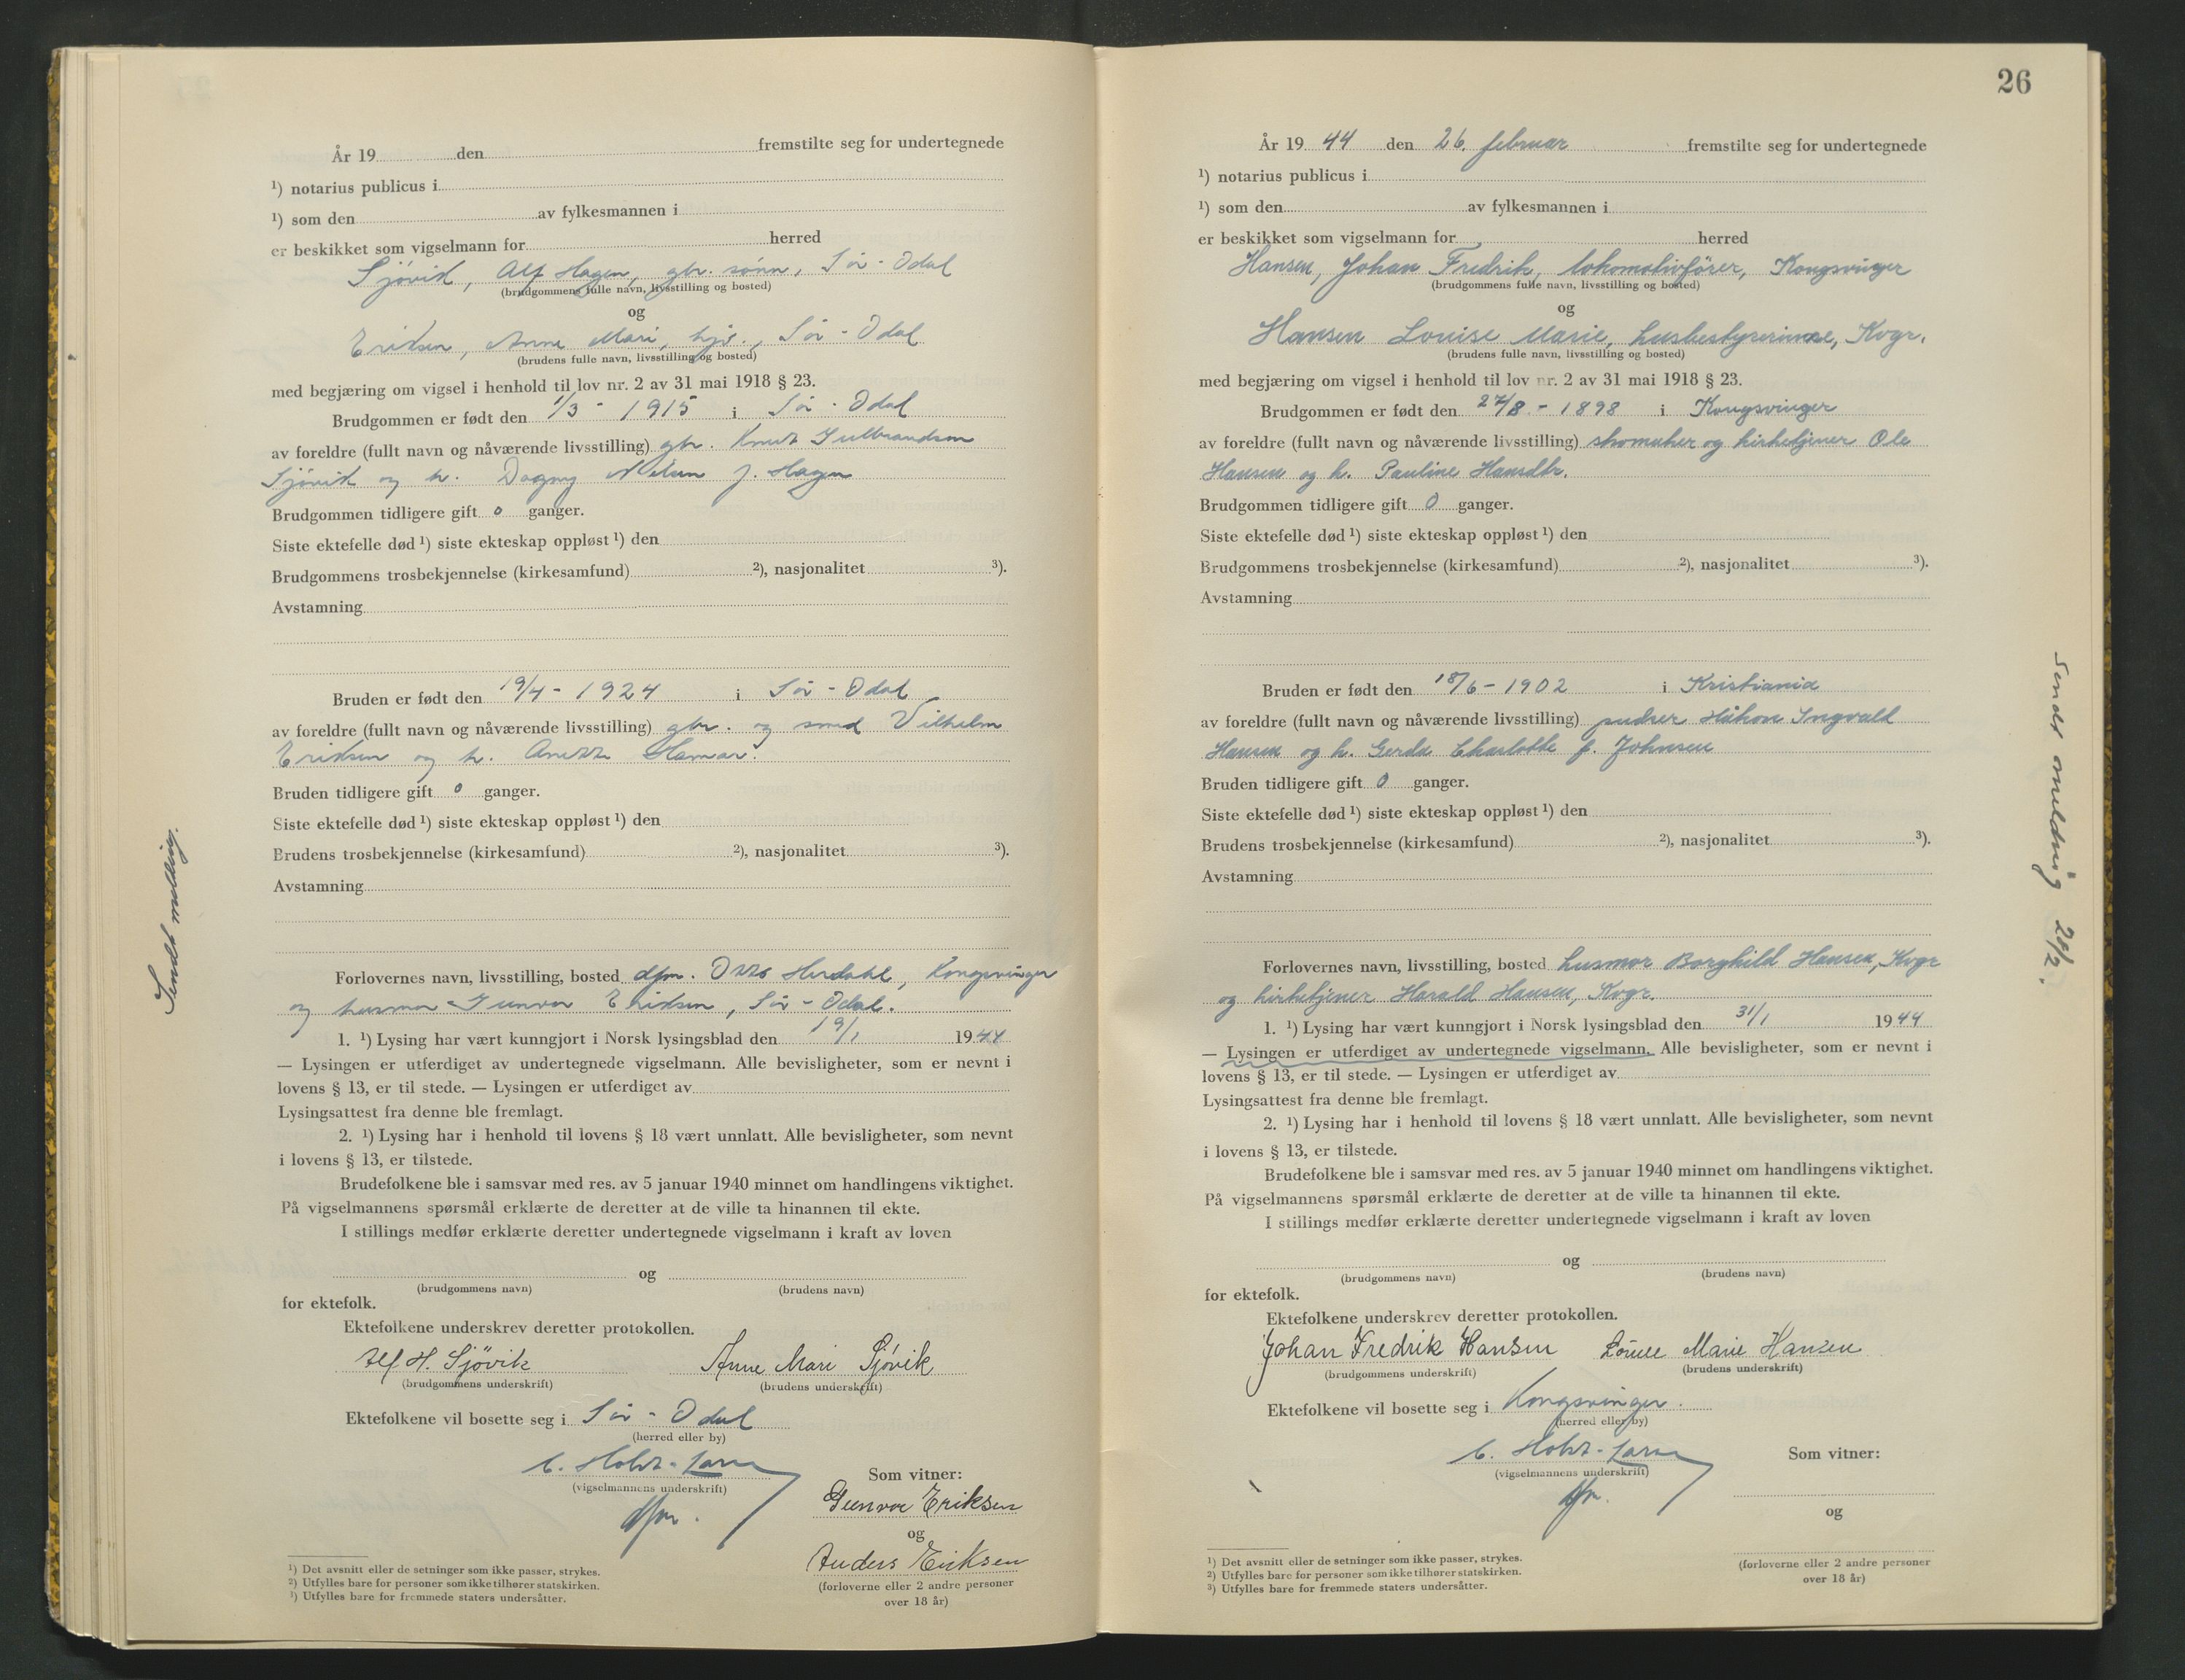 År 19 den fremstilte seg for undertegnede
¹) notarius publicus i
¹) som den av fylkesmannen i
er beskikket som vigselmann for herred
Sjövik, Alf Hagen, gbr. sönn, Sör-Odal
(brudgommens fulle navn, livsstilling og bosted)
og
Eriksen, Anne Mari, hjv., Sör-Odal
(brudens fulle navn, livsstilling og bosted)
med begjæring om vigsel i henhold til lov nr. 2 av 31 mai 1918 § 23.
Brudgommen er født den 1/3 - 1915 i Sör-Odal
av foreldre (fullt navn og nåværende livsstilling) gbr. Knut Gulbrandsen
Sjövik og h. Dagny f. Hagen
Brudgommen tidligere gift 0 ganger.
Siste ektefelle død ¹) siste ekteskap oppløst ¹) den
Brudgommens trosbekjennelse (kirkesamfund) ²), nasjonalitet ³).
Avstamning
Bruden er født den 19/4 - 1924 i Sör-Odal
av foreldre (fullt navn og nåværende livsstilling) gbr. og smed Vilhelm
Eriksen og h. Anette Hamar.
Bruden tidligere gift 0 ganger.
Siste ektefelle død ¹) siste ekteskap oppløst ¹) den
Brudens trosbekjennelse (kirkesamfund) ²), nasjonalitet ³).
Avstamning
Forlovernes navn, livsstilling, bosted dfm. Otto Herdahl, Kongsvinger
og husmor Gunvor Eriksen, Sör-Odal.
1. ¹) Lysing har vært kunngjort i Norsk lysingsblad den 19/1 1944
— Lysingen er utferdiget av undertegnede vigselmann. Alle bevisligheter, som er nevnt i
lovens § 13, er til stede. — Lysingen er utferdiget av
Lysingsattest fra denne ble fremlagt.
2. ¹) Lysing har i henhold til lovens § 18 vært unnlatt. Alle bevisligheter, som nevnt
i lovens § 13, er tilstede.
Brudefolkene ble i samsvar med res. av 5 januar 1940 minnet om handlingens viktighet.
På vigselmannens spørsmål erklærte de deretter at de ville ta hinannen til ekte.
I stillings medfør erklærte deretter undertegnede vigselmann i kraft av loven
og
(brudgommens navn) (brudens navn)
for ektefolk.
Ektefolkene underskrev deretter protokollen.
Alf H. Sjövik Anne Mari Sjövik
(brudgommens underskrift) (brudens underskrift)
Ektefolkene vil bosette seg i Sör-Odal
(herred eller by)
C. Holst-Larsen
(vigselmannens underskrift)
dfm.
Som vitner:
Gunvor Eriksen
og
Anders Eriksen
(forloverne eller 2 andre personer
over 18 år)
¹) Det avsnitt eller de setninger som ikke passer, strykes.
²) Utfylles bare for personer som ikke tilhører statskirken.
¹) Utfylles bare for fremmede staters undersåtter.
Sendt melding.
26
År 1944 den 26. februar fremstilte seg for undertegnede
¹) notarius publicus i
¹) som den av fylkesmannen i
er beskikket som vigselmann for herred
Hansen, Johan Fredrik, lokomotivförer, Kongsvinger
(brudgommens fulle navn, livsstilling og bosted)
og
Hansen Louise Marie, husbestyrerinne, Kvgr.
(brudens fulle navn, livsstilling og bosted)
med begjæring om vigsel i henhold til lov nr. 2 av 31 mai 1918 § 23.
Brudgommen er født den 27/8 - 1898 i Kongsvinger
av foreldre (fullt navn og nåværende livsstilling) skomaker og kirketjener Ole
Hansen og h. Pauline Hansdtr.
Brudgommen tidligere gift 0 ganger.
Siste ektefelle død ¹) siste ekteskap oppløst ¹) den
Brudgommens trosbekjennelse (kirkesamfund) ²), nasjonalitet ³).
Avstamning
Bruden er født den 18/6 - 1902 i Kristiania
av foreldre (fullt navn og nåværende livsstilling) pudser Håkon Ingvald
Hansen og h. Gerda Charlotte f. Johnsen
Bruden tidligere gift 0 ganger.
Siste ektefelle død ¹) siste ekteskap oppløst ¹) den
Brudens trosbekjennelse (kirkesamfund) ²), nasjonalitet ³).
Avstamning
Forlovernes navn, livsstilling, bosted husmor Borghild Hansen, Kvgr
og kirketjener Harald Hansen, Kvgr.
1. ¹) Lysing har vært kunngjort i Norsk lysingsblad den 31/1 1944
— Lysingen er utferdiget av undertegnede vigselmann. Alle bevisligheter, som er nevnt i
lovens § 13, er til stede. — Lysingen er utferdiget av
Lysingsattest fra denne ble fremlagt.
2. ¹) Lysing har i henhold til lovens § 18 vært unnlatt. Alle bevisligheter, som nevnt
i lovens § 13, er tilstede.
Brudefolkene ble i samsvar med res. av 5 januar 1940 minnet om handlingens viktighet.
På vigselmannens spørsmål erklærte de deretter at de ville ta hinannen til ekte.
I stillings medfør erklærte deretter undertegnede vigselmann i kraft av loven
og
(brudgommens navn) (brudens navn)
for ektefolk.
Ektefolkene underskrev deretter protokollen.
Johan Fredrik Hansen Louise Marie Hansen
(brudgommens underskrift) (brudens underskrift)
Ektefolkene vil bosette seg i Kongsvinger.
(herred eller by)
C. Holst-Larsen
(vigselmannens underskrift)
dfm.
Som vitner:
og
(forloverne eller 2 andre personer
over 18 år)
¹) Det avsnitt eller de setninger som ikke passer, strykes.
²) Utfylles bare for personer som ikke tilhører statskirken.
³) Utfylles bare for fremmede staters undersåtter.
Sendt melding 28/2.